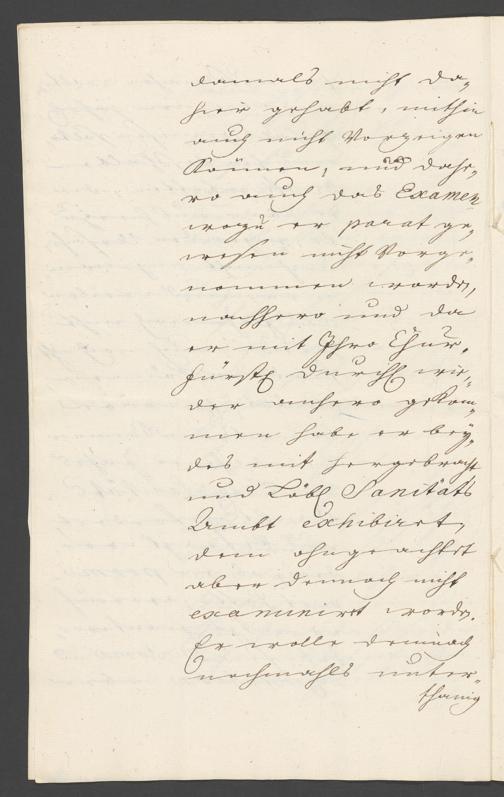 damals nicht da-
hier gehabt, mithin
auch nicht Vorzeigen
Können, und dahe-
ro auch das Examen
wozu er parat ge-
wesen nicht Vorge-
nommen worden,
nachhero und da
er mit Ihro Chur-
fürstl Durchl wie-
der anhero gekom-
men habe er bey-
des mit hergebracht
und Löbl Sanitäts
Ambt exhibiret,
dem ohngeachtet
aber dennoch nicht
examiniret worden.
Er wolle demnach
nochmahls unter-
thänig